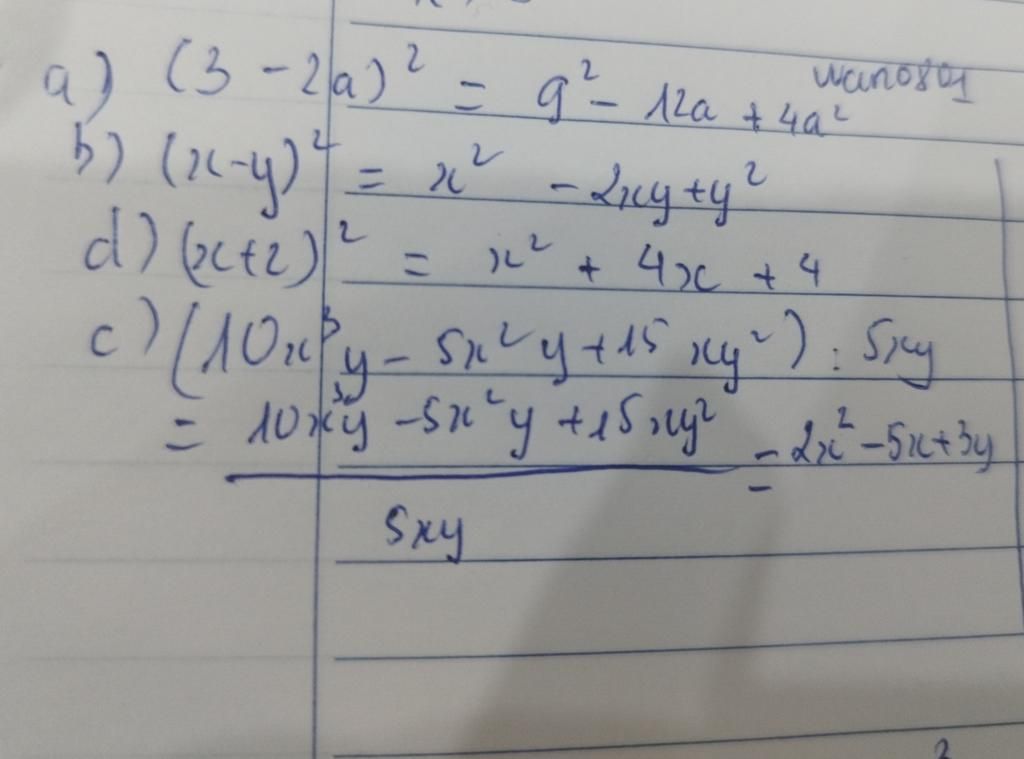 a) (3 - 2a)² = 9² - 12a + 4a²
wano801
b) (x-y)² = x² - 2xy+y²
d) (x+2)² = x² + 4x + 4
c) (10x³y - 5x²y + 15xy²) : 5xy
= 10x³y - 5x²y + 15xy² / 5xy = 2x² - 5x + 3y